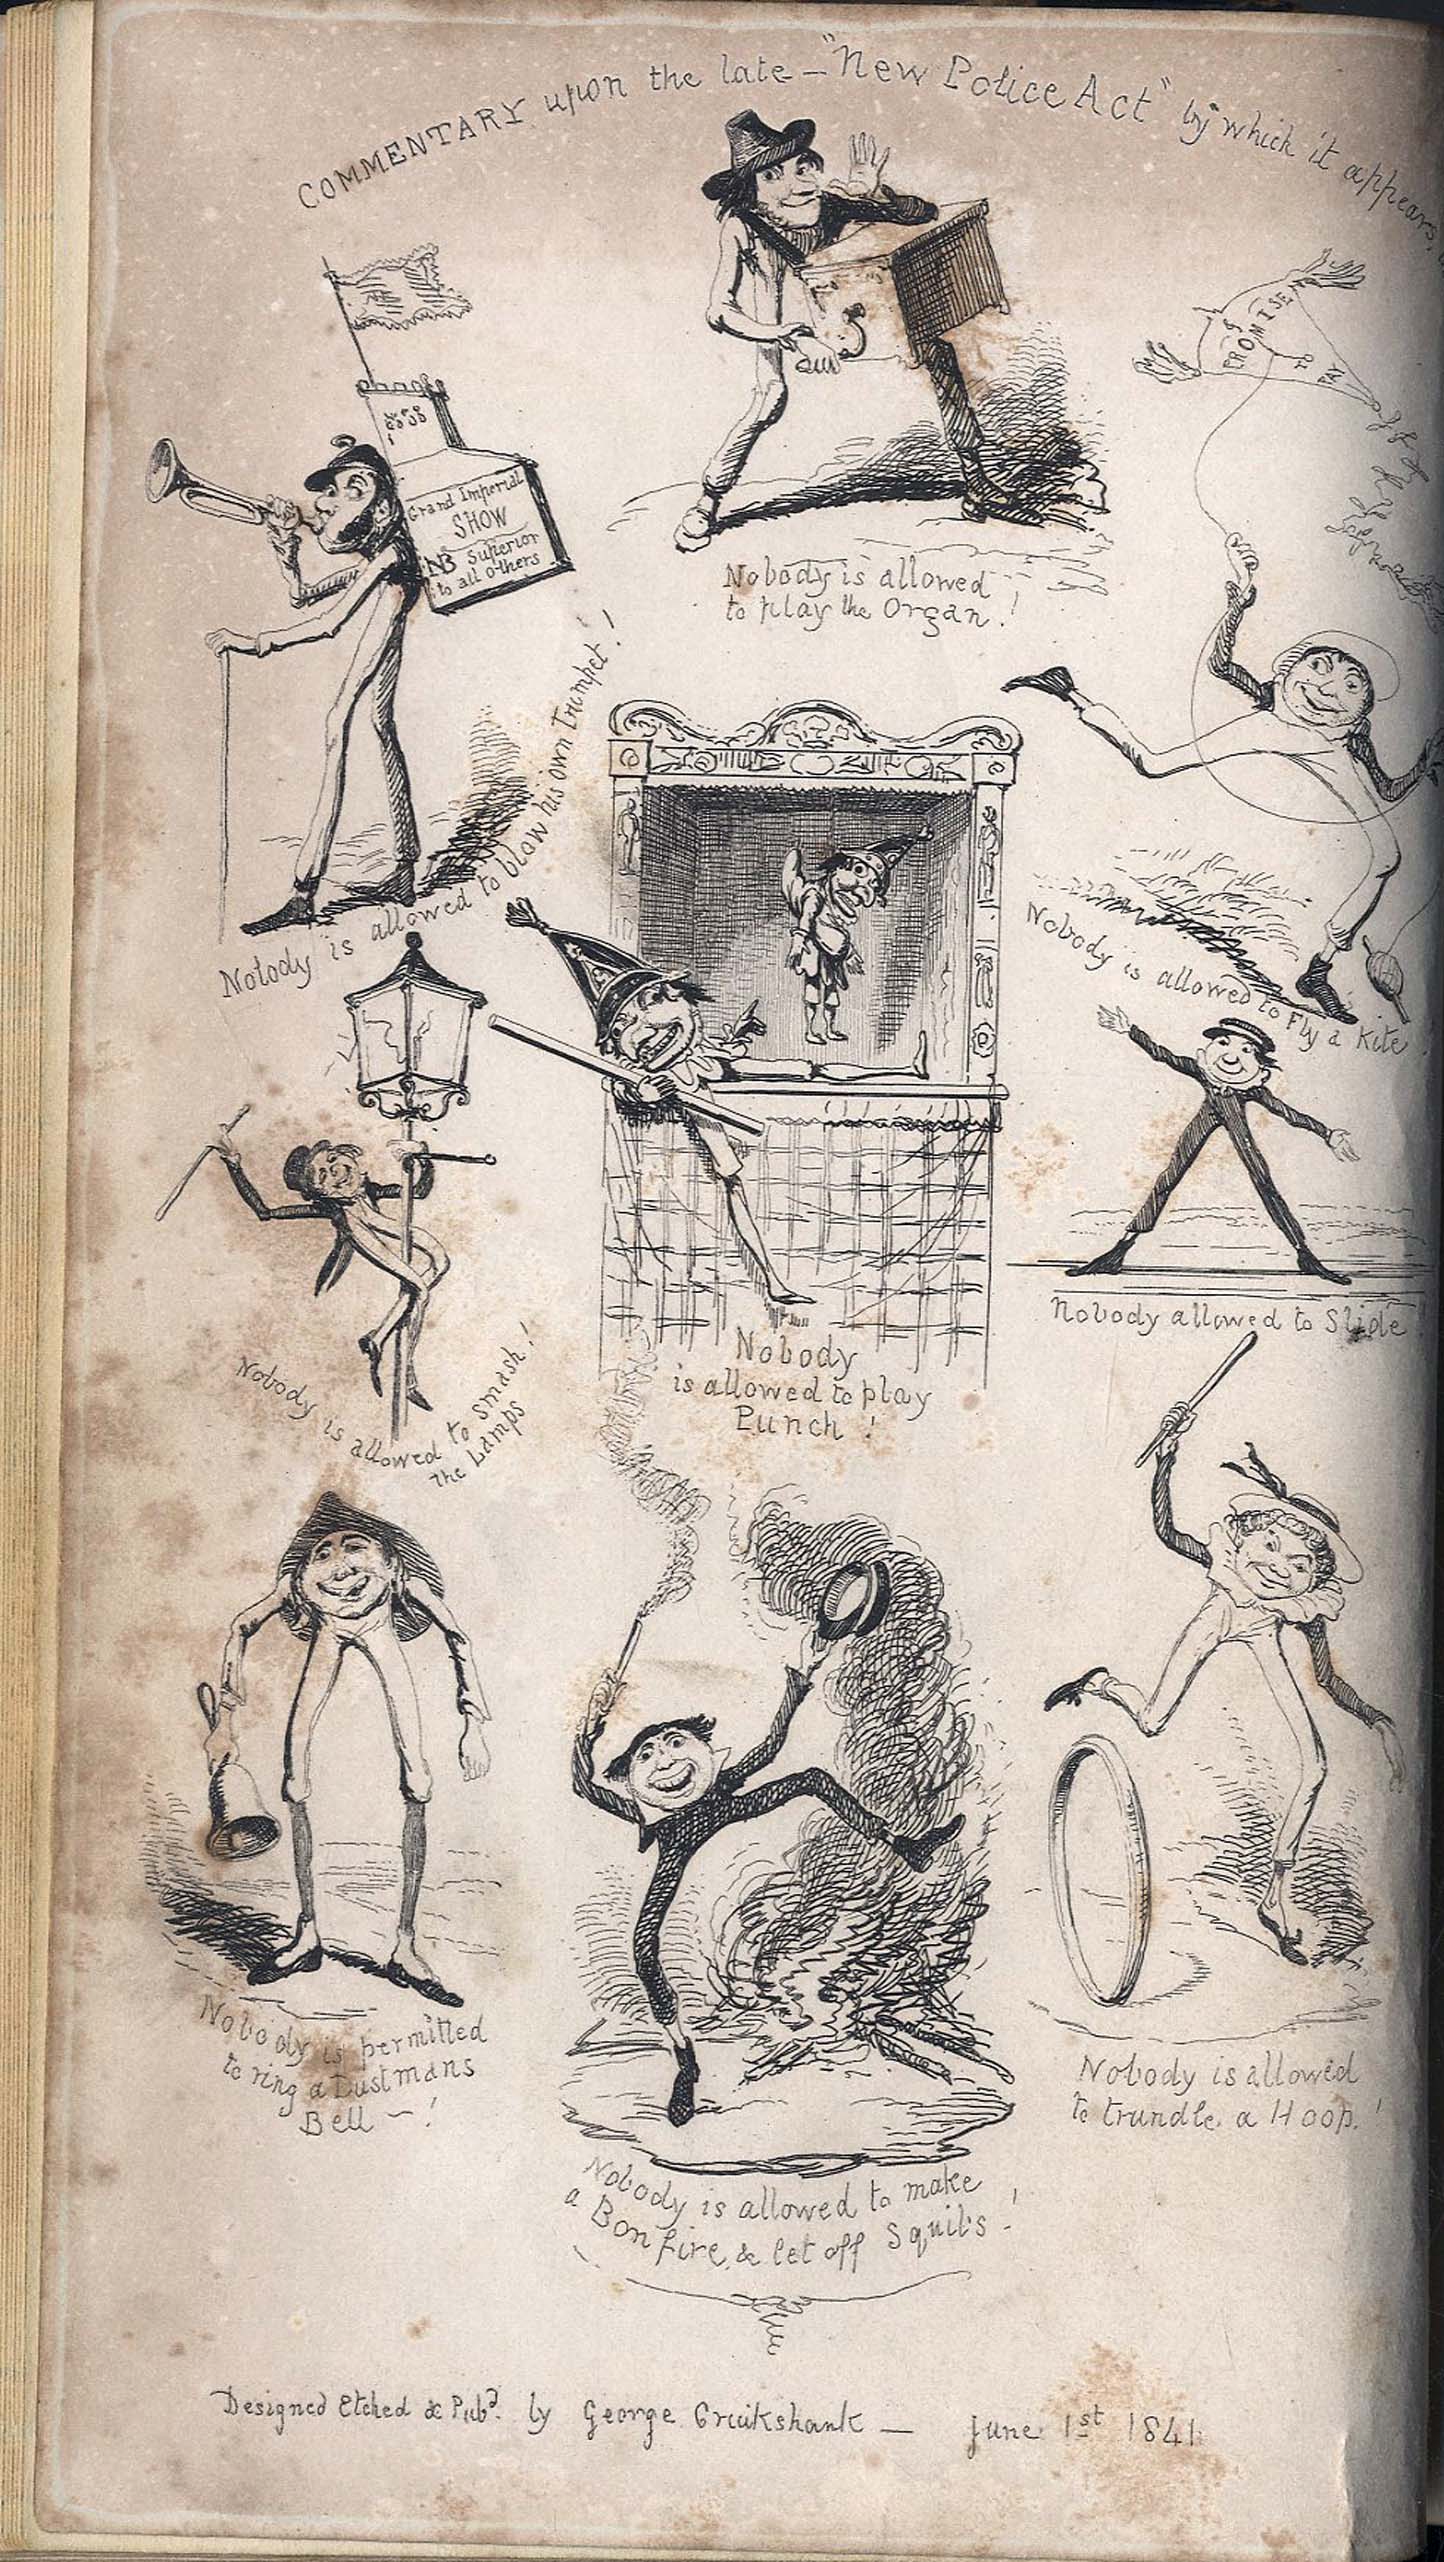 COMMENTARY upon the late — "New Police Act" by which it appears,
Nobody is allowed
to play the Organ!
PROMISE
TO
PAY
Grand Imperial
SHOW
NB Superior
to all others
Nobody is allowed to blow his own Trumpet!
Nobody is allowed to Fly a Kite
Nobody allowed to Slide
Nobody is allowed to Smash!
the Lamps
Nobody
is allowed to play
Punch!
Nobody is permitted
to ring a Dustmans
Bell —!
Nobody is allowed to make
a Bonfire, & let off Squibs —!
Nobody is allowed
to trundle a Hoop.!
Designed Etched & Pubd. by George Cruikshank — June 1st 1841